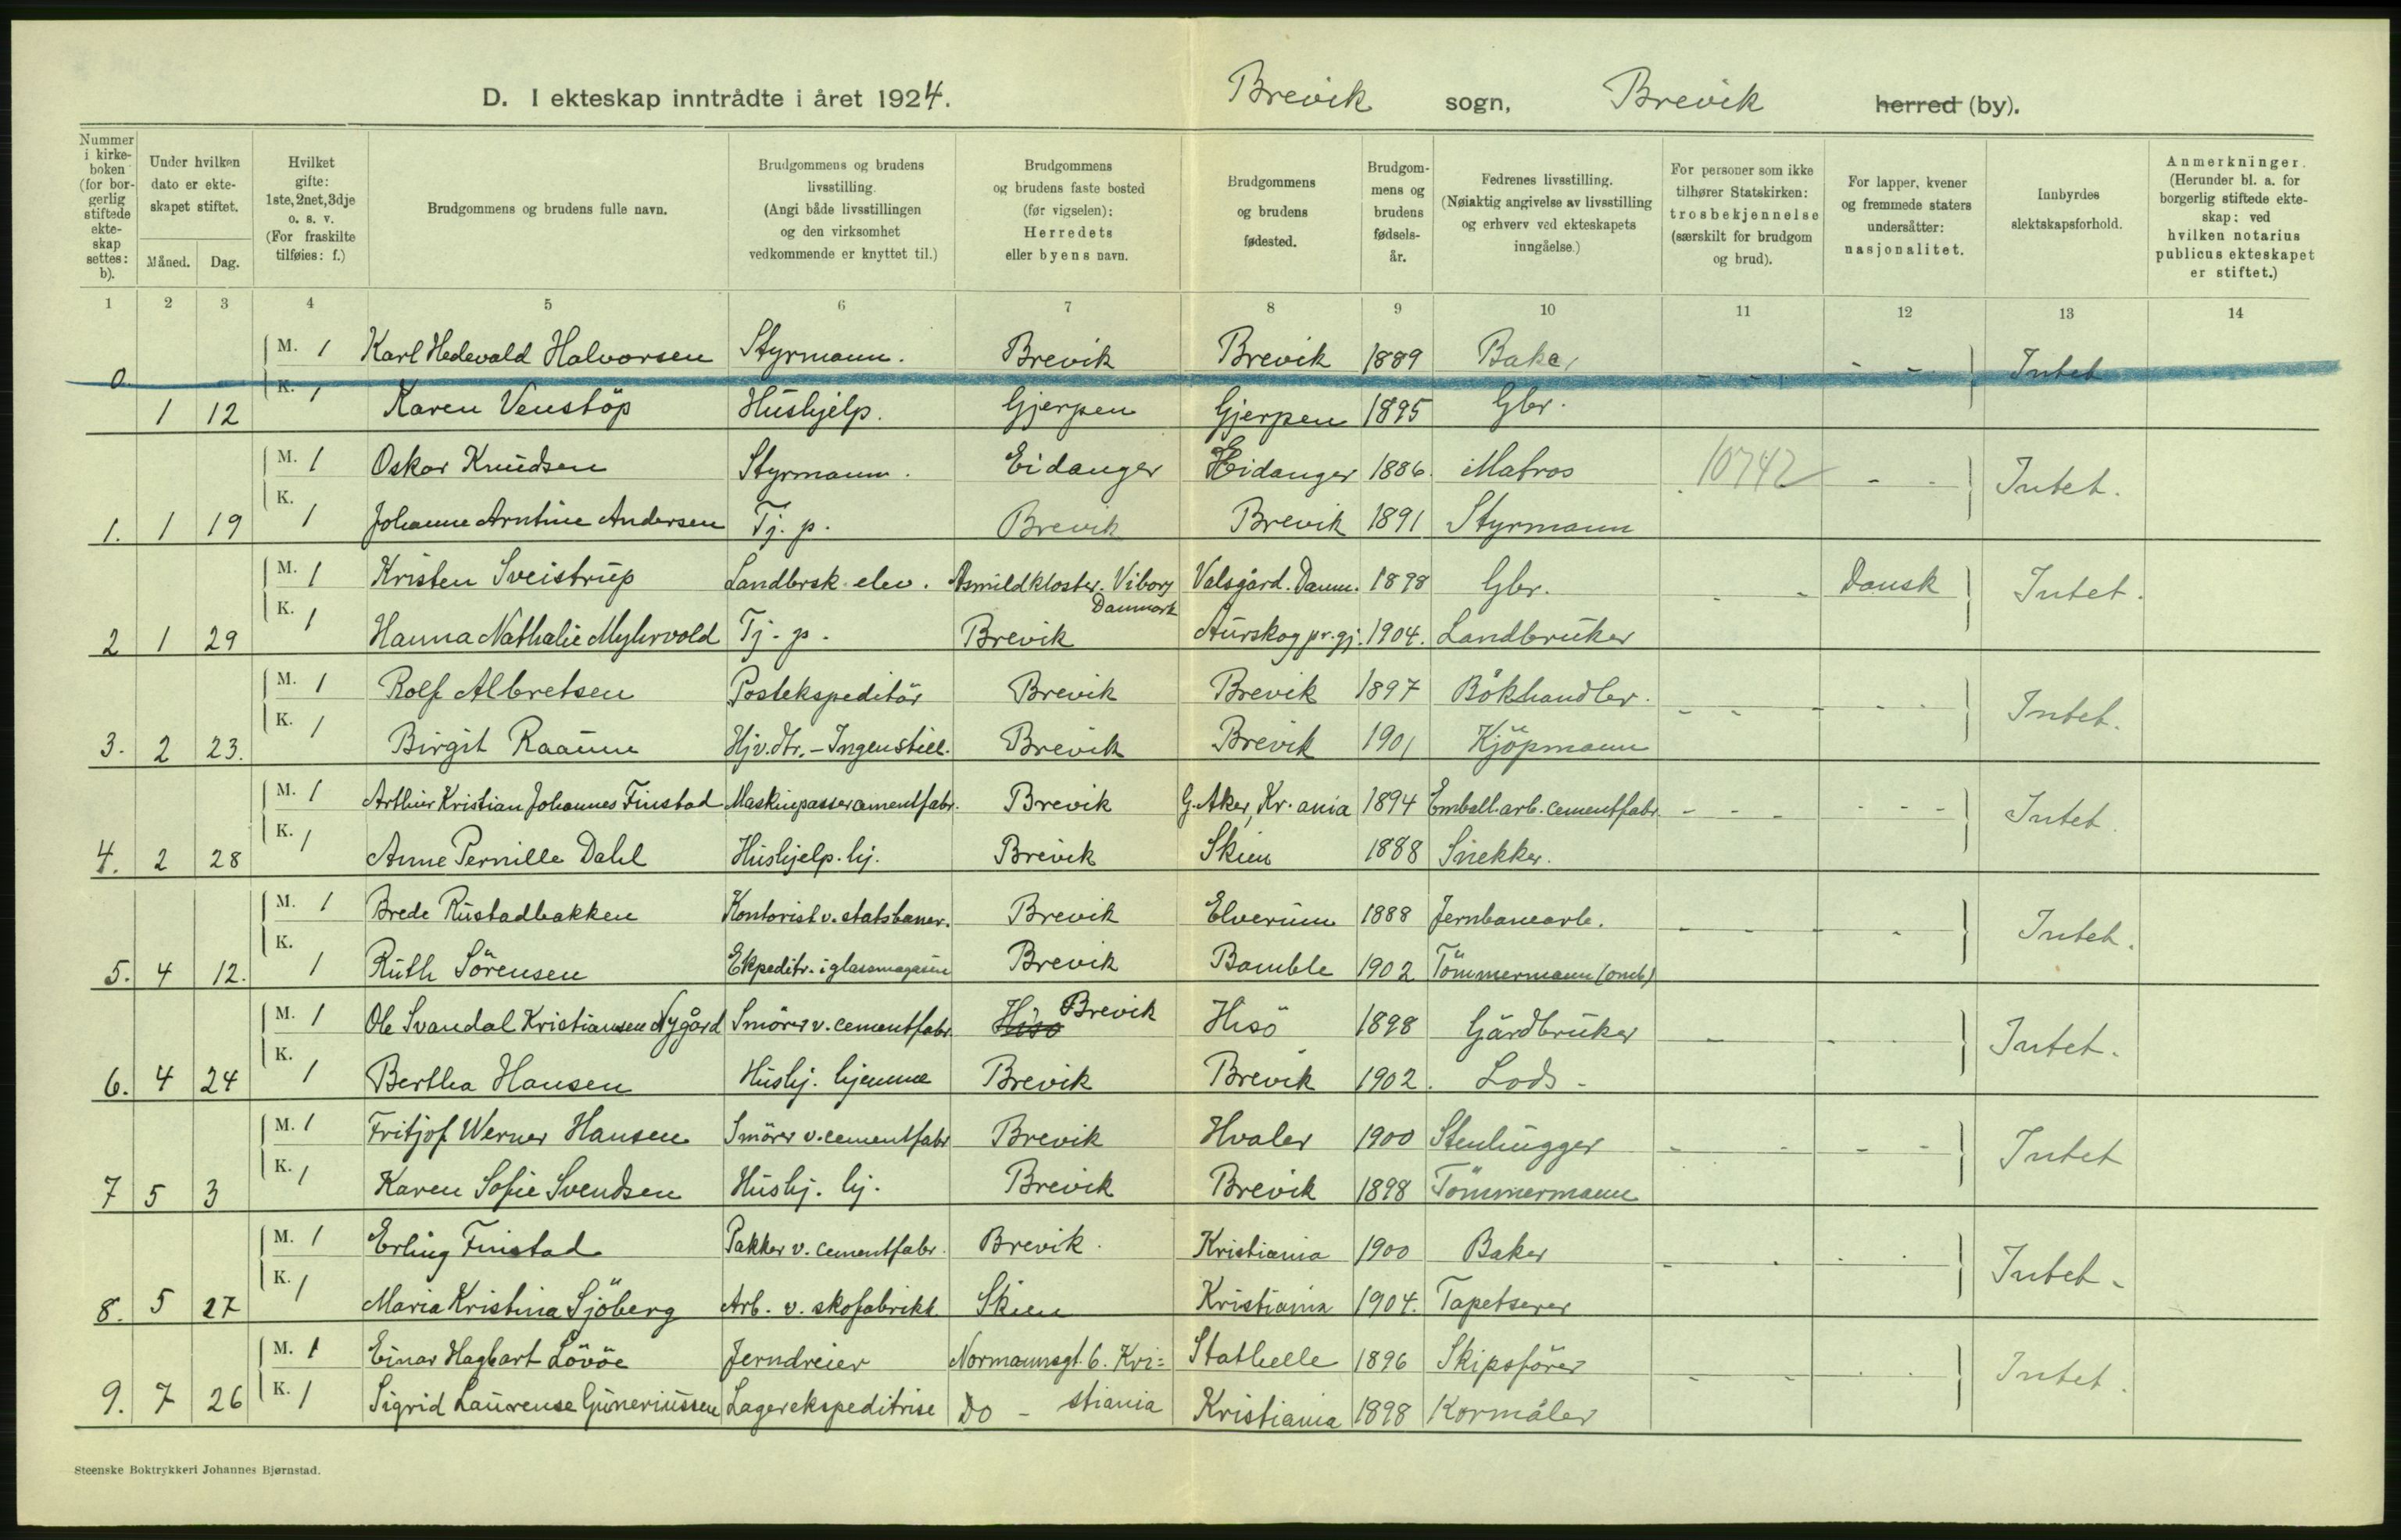 D. I ekteskap inntrådte i året 1924. Brevik sogn, Brevik herred (by).
Nummer i kirke- boken (for bor- gerlig stiftede ekte- skap settes: b).
Under hvilken dato er ekte- skapet stiftet.
Måned. Dag.
Hvilket gifte: 1ste, 2net, 3dje o. s. v. (For fraskilte tilføies: f.)
Brudgommens og brudens fulle navn.
Brudgommens og brudens livsstilling. (Angi både livsstillingen og den virksomhet vedkommende er knyttet til.)
Brudgommens og brudens faste bosted (før vigselen): Herredets eller byens navn.
Brudgommens og brudens fødested.
Brudgom- mens og brudens fødsels- år.
Fedrenes livsstilling. (Nøiaktig angivelse av livsstilling og erhverv ved ekteskapets inngåelse.)
For personer som ikke tilhører Statskirken: trosbekjennelse (særskilt for brudgom og brud).
For lapper, kvener og fremmede staters undersåtter: nasjonalitet.
Innbyrdes slektskapsforhold.
Anmerkninger. (Herunder bl. a. for borgerlig stiftede ekte- skap: ved hvilken notarius publicus ekteskapet er stiftet.)
1 2 3 4 5 6 7 8 9 10 11 12 13 14
M. 1 Karl Hedevald Halvorsen Styrmann. Brevik Brevik 1889 Baker - - - - Intet
0 1 12 K. 1 Karen Venstöp Hushjelp. Gjerpen Gjerpen 1895 Gbr.
M. 1 Oskar Knudsen Styrmann. Eidanger Eidanger 1886. Matros 10742 - - Intet.
1. 1 19 K. 1 Johanne Arntine Andersen Tj. p. Brevik Brevik 1891 Styrmann
M. 1 Kristen Sveistrup Landbrsk. elev. Asmildkloster. Viborg Danmark Valsgård. Danm. 1898 Gbr. - - Dansk Intet.
2 1 29 K. 1 Hanna Nathalie Myhrvold Tj. p. Brevik Aurskog pr.gj. 1904. Landbruker
M. 1 Rolf Albretsen Postekspeditör Brevik Brevik 1897 Bökhandler. - - - - - Intet.
3. 2 23. K. 1 Birgit Raaum Hj v. dtr. - Ingen still. Brevik Brevik 1901 Kjöpmann
M. 1 Arthur Kristian Johannes Finstad Maskinpasser cementfabr. Brevik G. Aker, Kr.ania 1894 Emball.arb. cementfabr. - - - - - - Intet.
4. 2 28 K. 1 Anne Pernille Dahl Hushjelp. hj. Brevik Skien 1888 Snekker.
M. 1 Brede Rustadbakken Kontorist v. statsbaner. Brevik Elverum 1888 Jernbanearb. - - - - Intet.
5. 4 12. K. 1 Ruth Sörensen Ekpeditr. i glassmagasin Brevik Bamble 1902 Tömmermann (omb)
M. 1 Ole Svandal Kristiansen Nygård Smörer v. cementfabr. Hisö Brevik Hisö 1898 Gårdbruker - - - Intet.
6. 4 24 K. 1 Bertha Hansen Hushj. hjemme Brevik Brevik 1902. Lods -
M. 1 Fritjof Werner Hansen Smörer v. cementfabr Brevik Hvaler 1900 Stenhugger - - - - Intet
7 5 3 K. 1 Karen Sofie Svendsen Hushj. hj. Brevik Brevik 1898 Tömmermann
M. 1 Erling Finstad Pakker v. cementfabr. Brevik. Kristiania 1900 Baker - - - - Intet -
8. 5 27 K. 1 Maria Kristina Sjöberg Arb. v. skofabrikk Skien Kristiania 1904. Tapetserer
M. 1 Einar Hagbart Lövöe Jerndreier Normannsgt. 6. Kri= Stathelle 1896 Skipsförer - - - - Intet.
9. 7 26 K. 1 Sigrid Laurense Guneriussen Lagerekspeditrise Do - stiania Kristiania 1898 Kormåler
Steenske Boktrykkeri Johannes Bjørnstad.